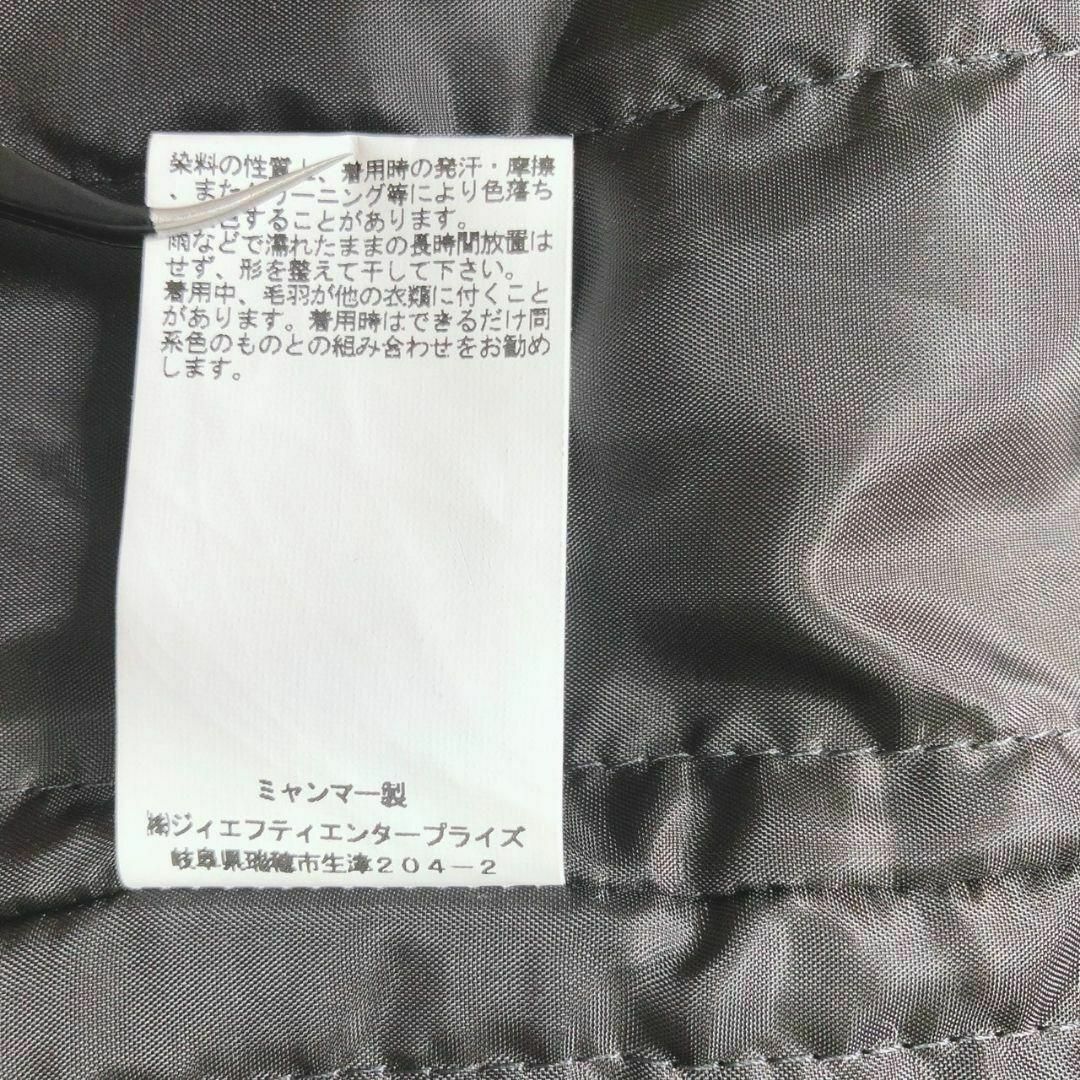 染料の性質上、着用時の発汗・摩擦
、またクリーニング等により色落ち
色することがあります。
雨などで濡れたままの長時間放置は
せず、形を整えて干して下さい。
着用中、毛羽が他の衣類に付くこと
があります。着用時はできるだけ同
系色のものとの組み合わせをお勧め
します。
ミャンマー製
㈱ジィエフティエンタープライズ
岐阜県瑞穂市生津204-2